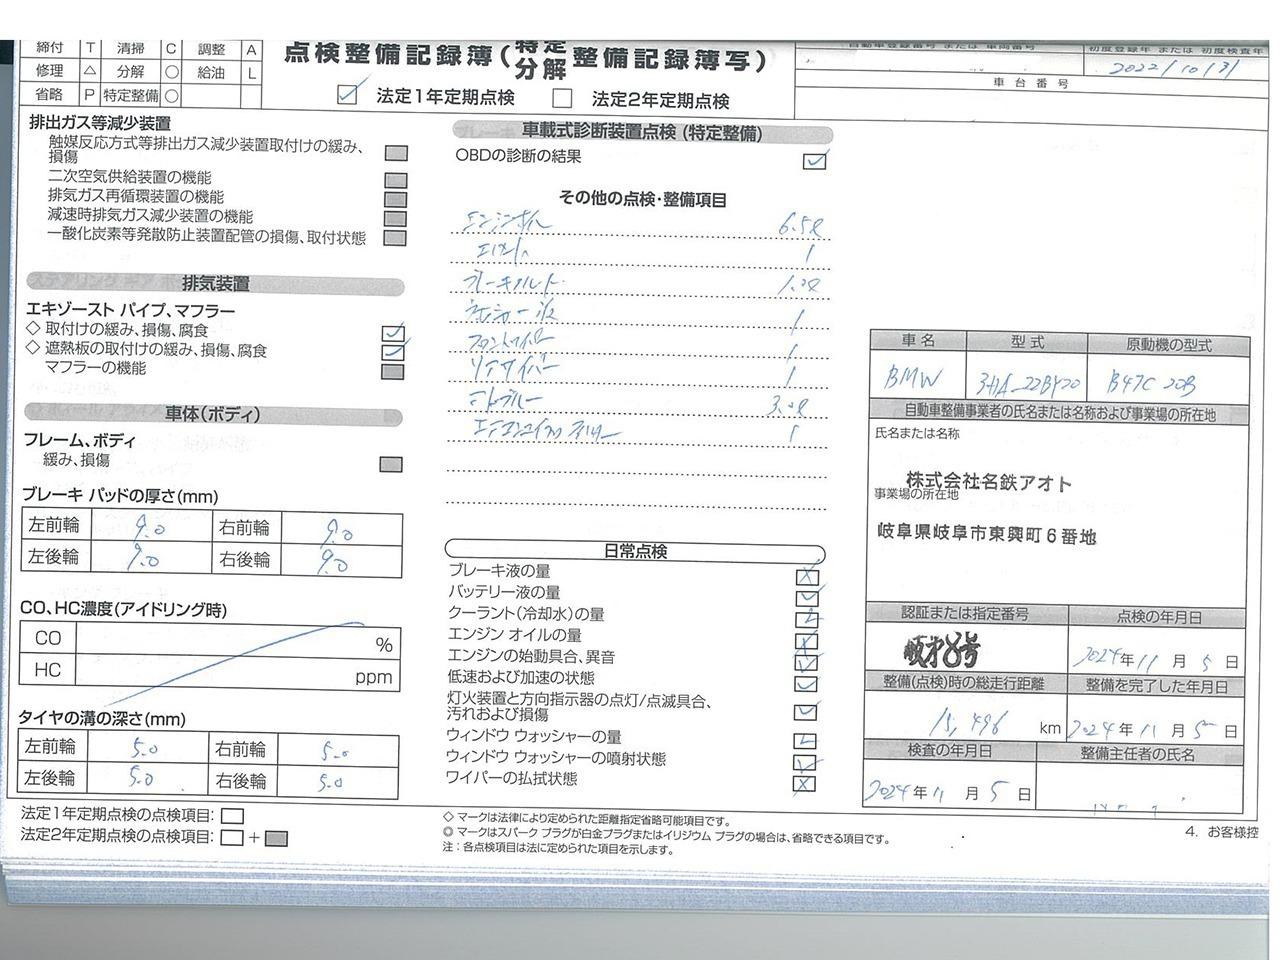 締付 T 清掃 C 調整 A
修理 △ 分解 ○ 給油 L
省略 P 特定整備 ○
点検整備記録簿(特定分解整備記録簿写)
法定1年定期点検 法定2年定期点検
自動車登録番号 または 車両番号
初度登録年 または 初度検査年
2022/10/31
車台番号
排出ガス等減少装置
触媒反応方式等排出ガス減少装置取付けの緩み、
損傷
二次空気供給装置の機能
排気ガス再循環装置の機能
減速時排気ガス減少装置の機能
一酸化炭素等発散防止装置配管の損傷、取付状態
排気装置
エキゾースト パイプ、マフラー
◇ 取付けの緩み、損傷、腐食
◇ 遮熱板の取付けの緩み、損傷、腐食
マフラーの機能
車体(ボディ)
フレーム、ボディ
緩み、損傷
ブレーキ パッドの厚さ(mm)
左前輪 9.0 右前輪 9.0
左後輪 9.0 右後輪 9.0
CO、HC濃度(アイドリング時)
CO %
HC ppm
タイヤの溝の深さ(mm)
左前輪 5.0 右前輪 5.0
左後輪 5.0 右後輪 5.0
法定1年定期点検の点検項目:
法定2年定期点検の点検項目: +
車載式診断装置点検 (特定整備)
OBDの診断の結果
その他の点検・整備項目
エンジンオイル 6.5ℓ
エレメント 1
ブレーキフルード 1.0ℓ
ウォッシャー液 1
フロントワイパー 1
リアワイパー 1
アドブルー 3.0ℓ
エアコンマイクロフィルター 1
日常点検
ブレーキ液の量
バッテリー液の量
クーラント(冷却水)の量
エンジン オイルの量
エンジンの始動具合、異音
低速および加速の状態
灯火装置と方向指示器の点灯/点滅具合、
汚れおよび損傷
ウィンドウ ウォッシャーの量
ウィンドウ ウォッシャーの噴射状態
ワイパーの払拭状態
◇ マークは法律により定められた距離指定省略可能項目です。
◎ マークはスパーク プラグが白金プラグまたはイリジウム プラグの場合は、省略できる項目です。
注:各点検項目は法に定められた項目を示します。
車名 型式 原動機の型式
BMW 3HA-22BY20 B47C20B
自動車整備事業者の氏名または名称および事業場の所在地
氏名または名称
株式会社名鉄アオト
事業場の所在地
岐阜県岐阜市東興町6番地
認証または指定番号 点検の年月日
2024年11月5日
整備(点検)時の総走行距離 整備を完了した年月日
15,496 km 2024年11月5日
検査の年月日 整備主任者の氏名
2024年11月5日
4. お客様控